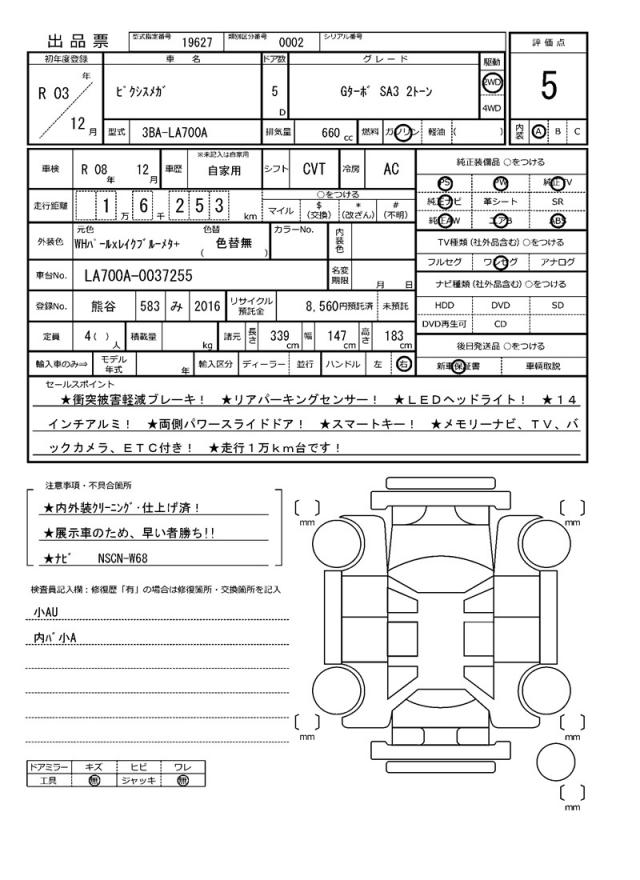 出品票 型式指定番号 19627 類別区分番号 0002 シリアル番号
評価点
5
内装 A B C
初年度登録 車名 ドア数 グレード 駆動
R 03 年 12 月 ピクシスメガ 5 D Gターボ SA3 2トーン 2WD 4WD
型式 3BA-LA700A 排気量 660 cc 燃料 ガソリン 軽油 ( )
車検 R 08 年 12 月 車歴 ※未記入は自家用 自家用 シフト CVT 冷房 AC
走行距離 1 万 6 千 2 5 3 km ○をつける マイル $ (交換) * (改ざん) # (不明)
外装色 元色 WHパールxレイクブルーメタ+ 色替 ( 色替無 ) カラーNo. 内装色
車台No. LA700A-0037255 名変期限 月 日
登録No. 熊谷 583 み 2016 リサイクル預託金 8,560円預託済 未預託
定員 4( ) 人 積載量 kg 諸元 長さ 339 cm 幅 147 cm 高さ 183 cm
輸入車のみ⇒ モデル年式 年 輸入区分 ディーラー 並行 ハンドル 左 右
純正装備品 ○をつける
PS PW 純正TV
純正ナビ 革シート SR
純正AW エアB ABS
TV種類 (社外品含む) ○をつける
フルセグ ワンセグ アナログ
ナビ種類 (社外品含む) ○をつける
HDD DVD SD
DVD再生可 CD
後日発送品 ○をつける
新車保証書 車輌取説
セールスポイント
★衝突被害軽減ブレーキ! ★リアパーキングセンサー! ★LEDヘッドライト! ★14
インチアルミ! ★両側パワースライドドア! ★スマートキー! ★メモリーナビ、TV、バ
ックカメラ、ETC付き! ★走行1万km台です!
注意事項・不具合箇所
★内外装クリーニング・仕上げ済!
★展示車のため、早い者勝ち!!
★ナビ NSCN-W68
検査員記入欄:修復歴「有」の場合は修復箇所・交換箇所を記入
小AU
内バ小A
ドアミラー キズ ヒビ ワレ
工具 無 ジャッキ 無
[ ] mm
[ ] mm
[ ] mm
[ ] mm
[ ] mm